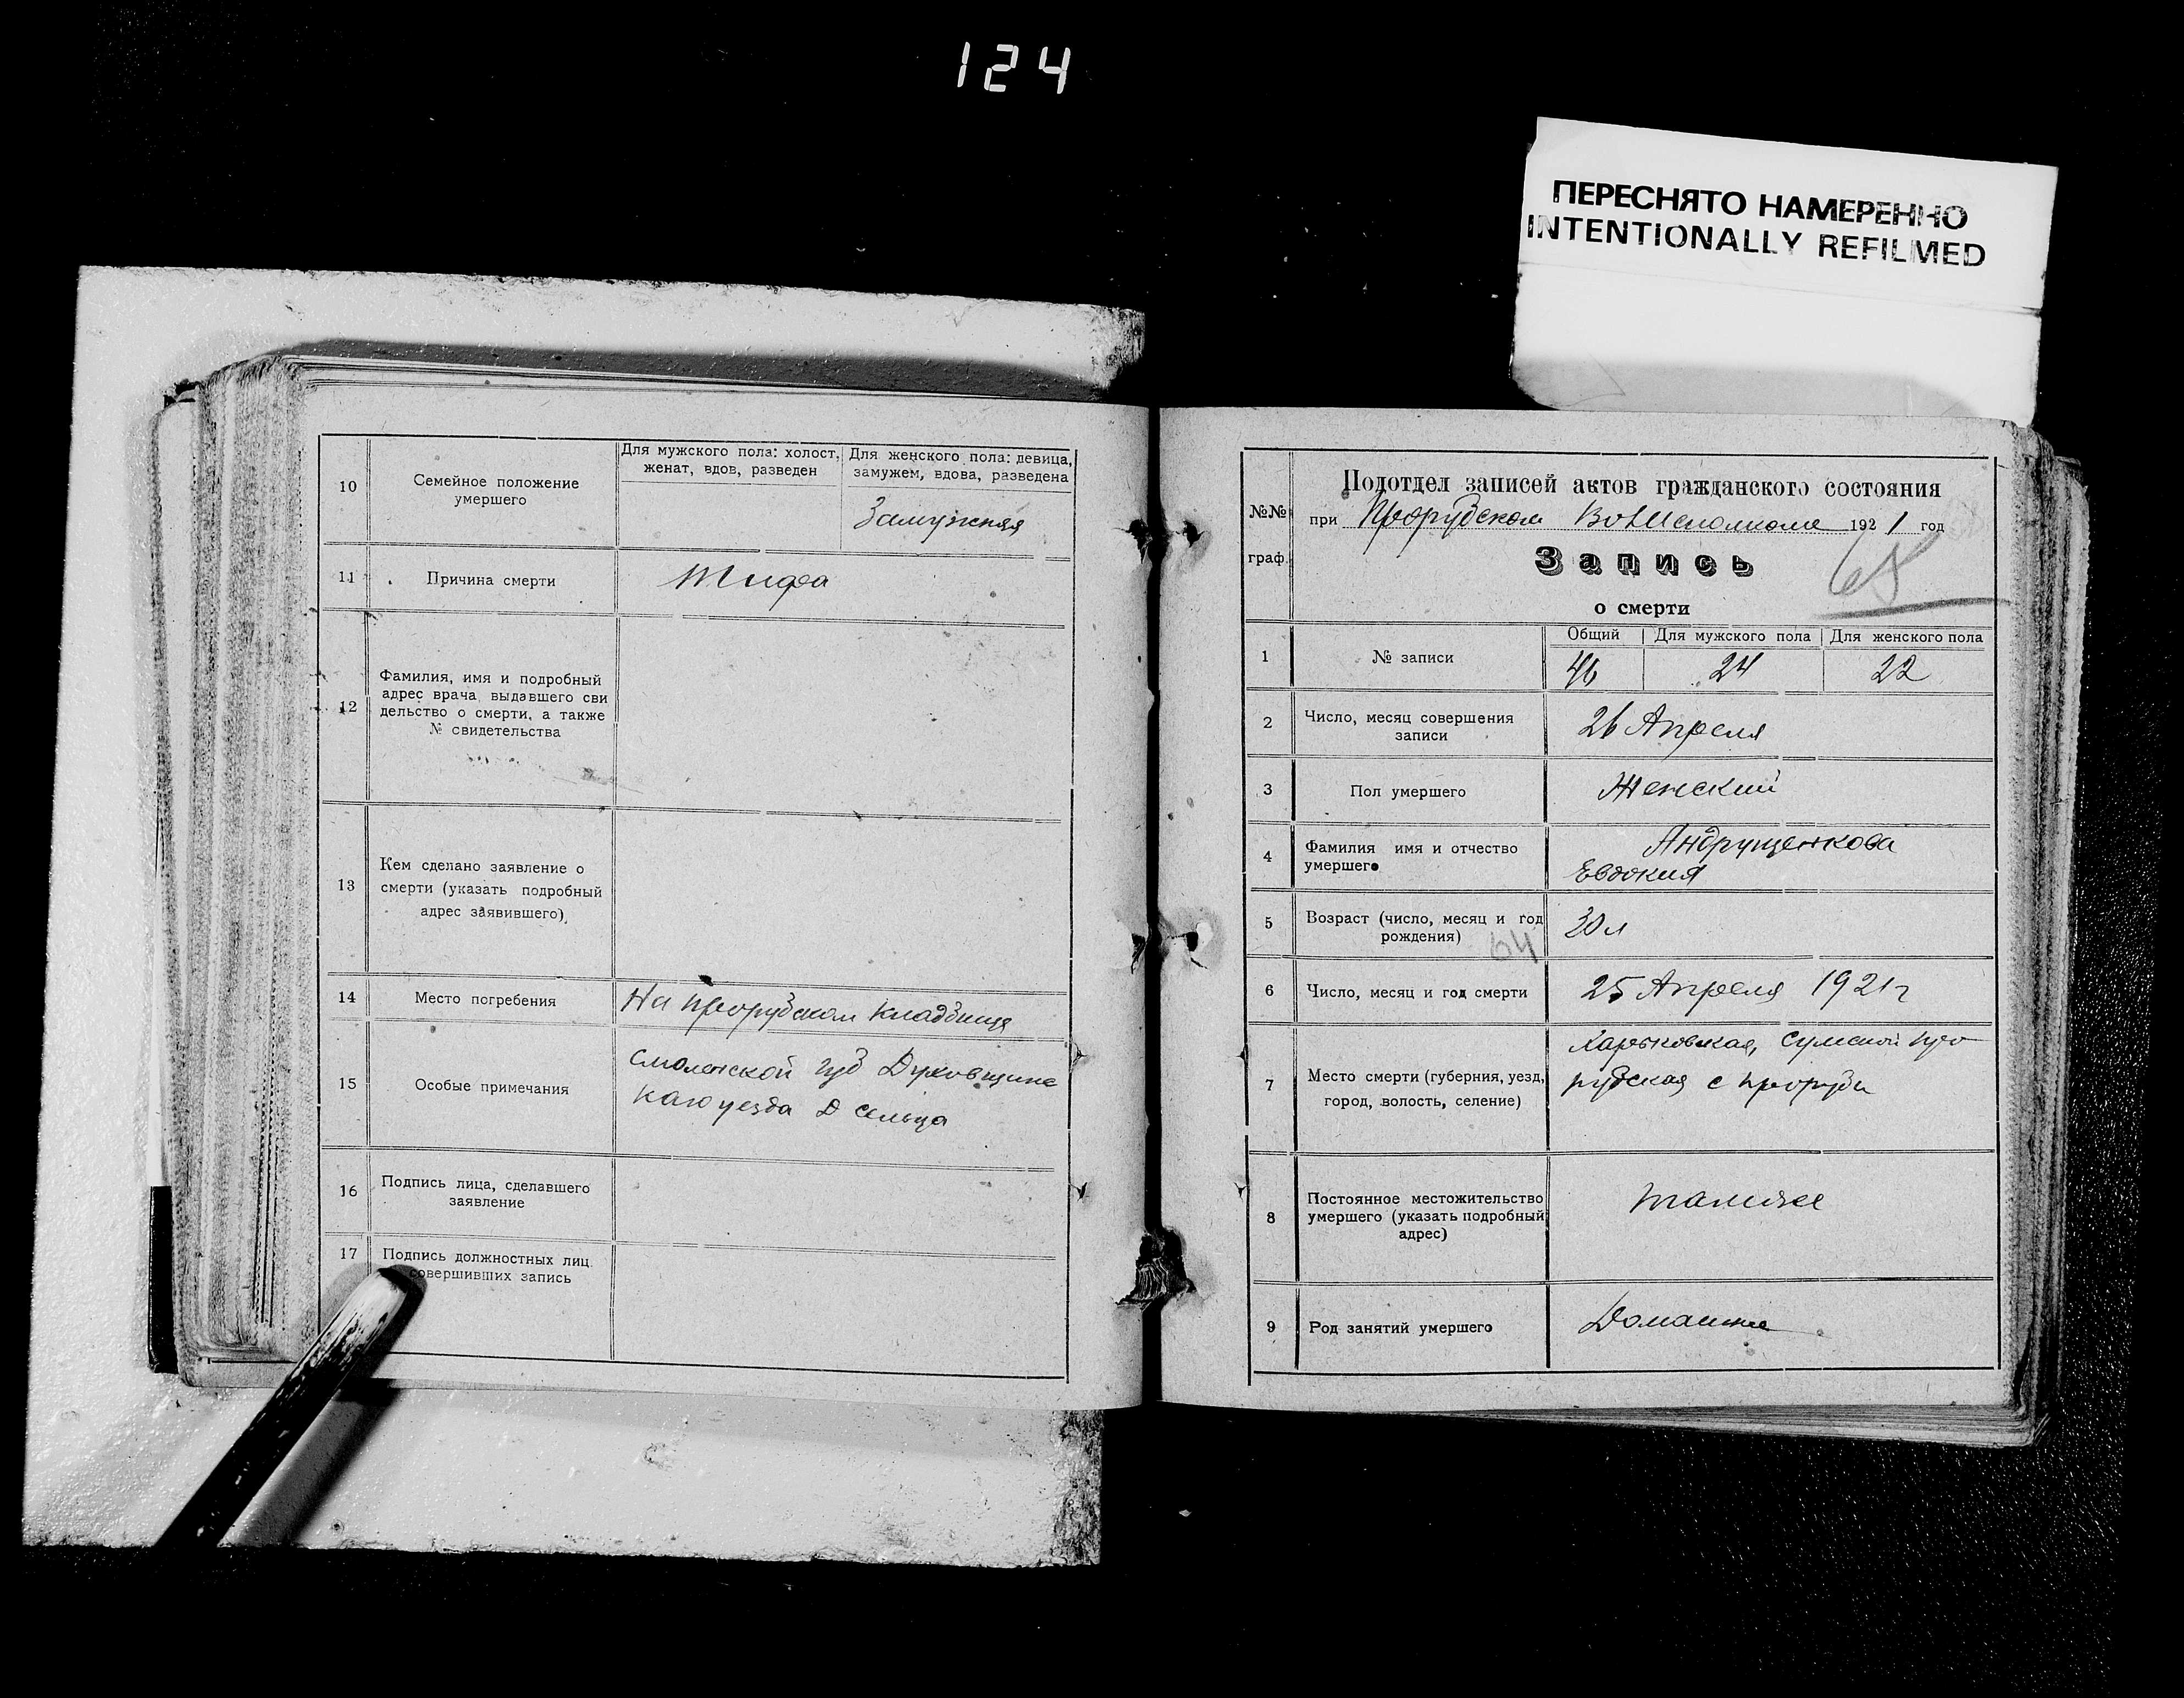 124
ПЕРЕСНЯТО НАМЕРЕННО
INTENTIONALLY REFILMED
10
Семейное положение
умершего
Для мужского пола: холост,
женат, вдов, разведен
Для женского пола: девица,
замужем, вдова, разведена
Замужняя
11
Причина смерти
Тифа
12
Фамилия, имя и подробный
адрес врача выдавшего сви
дельство о смерти, а также
№ свидетельства
13
Кем сделано заявление о
смерти (указать подробный
адрес заявившего)
14
Место погребения
На прорубском кладбище
15
Особые примечания
Смоленской губ Духовщинс
кого уезда Д Сельца
16
Подпись лица, сделавшего
заявление
17
Подпись должностных лиц
совершивших запись
№№
граф.
Подотдел записей актов гражданского состояния
при Прорубском Волисполкоме 1921 год
Запись
о смерти
1
№ записи
Общий
Для мужского пола
Для женского пола
46
24
22
2
Число, месяц совершения
записи
26 Апреля
3
Пол умершего
Женский
4
Фамилия имя и отчество
умершего
Андрущенкова
Евдокия
5
Возраст (число, месяц и год
рождения)
64
30 л
6
Число, месяц и год смерти
25 Апреля 1921 г
7
Место смерти (губерния, уезд,
город, волость, селение)
Харьковская, Сумской про
рубская с проруби
8
Постоянное местожительство
умершего (указать подробный
адрес)
тамже
9
Род занятий умершего
Домашние